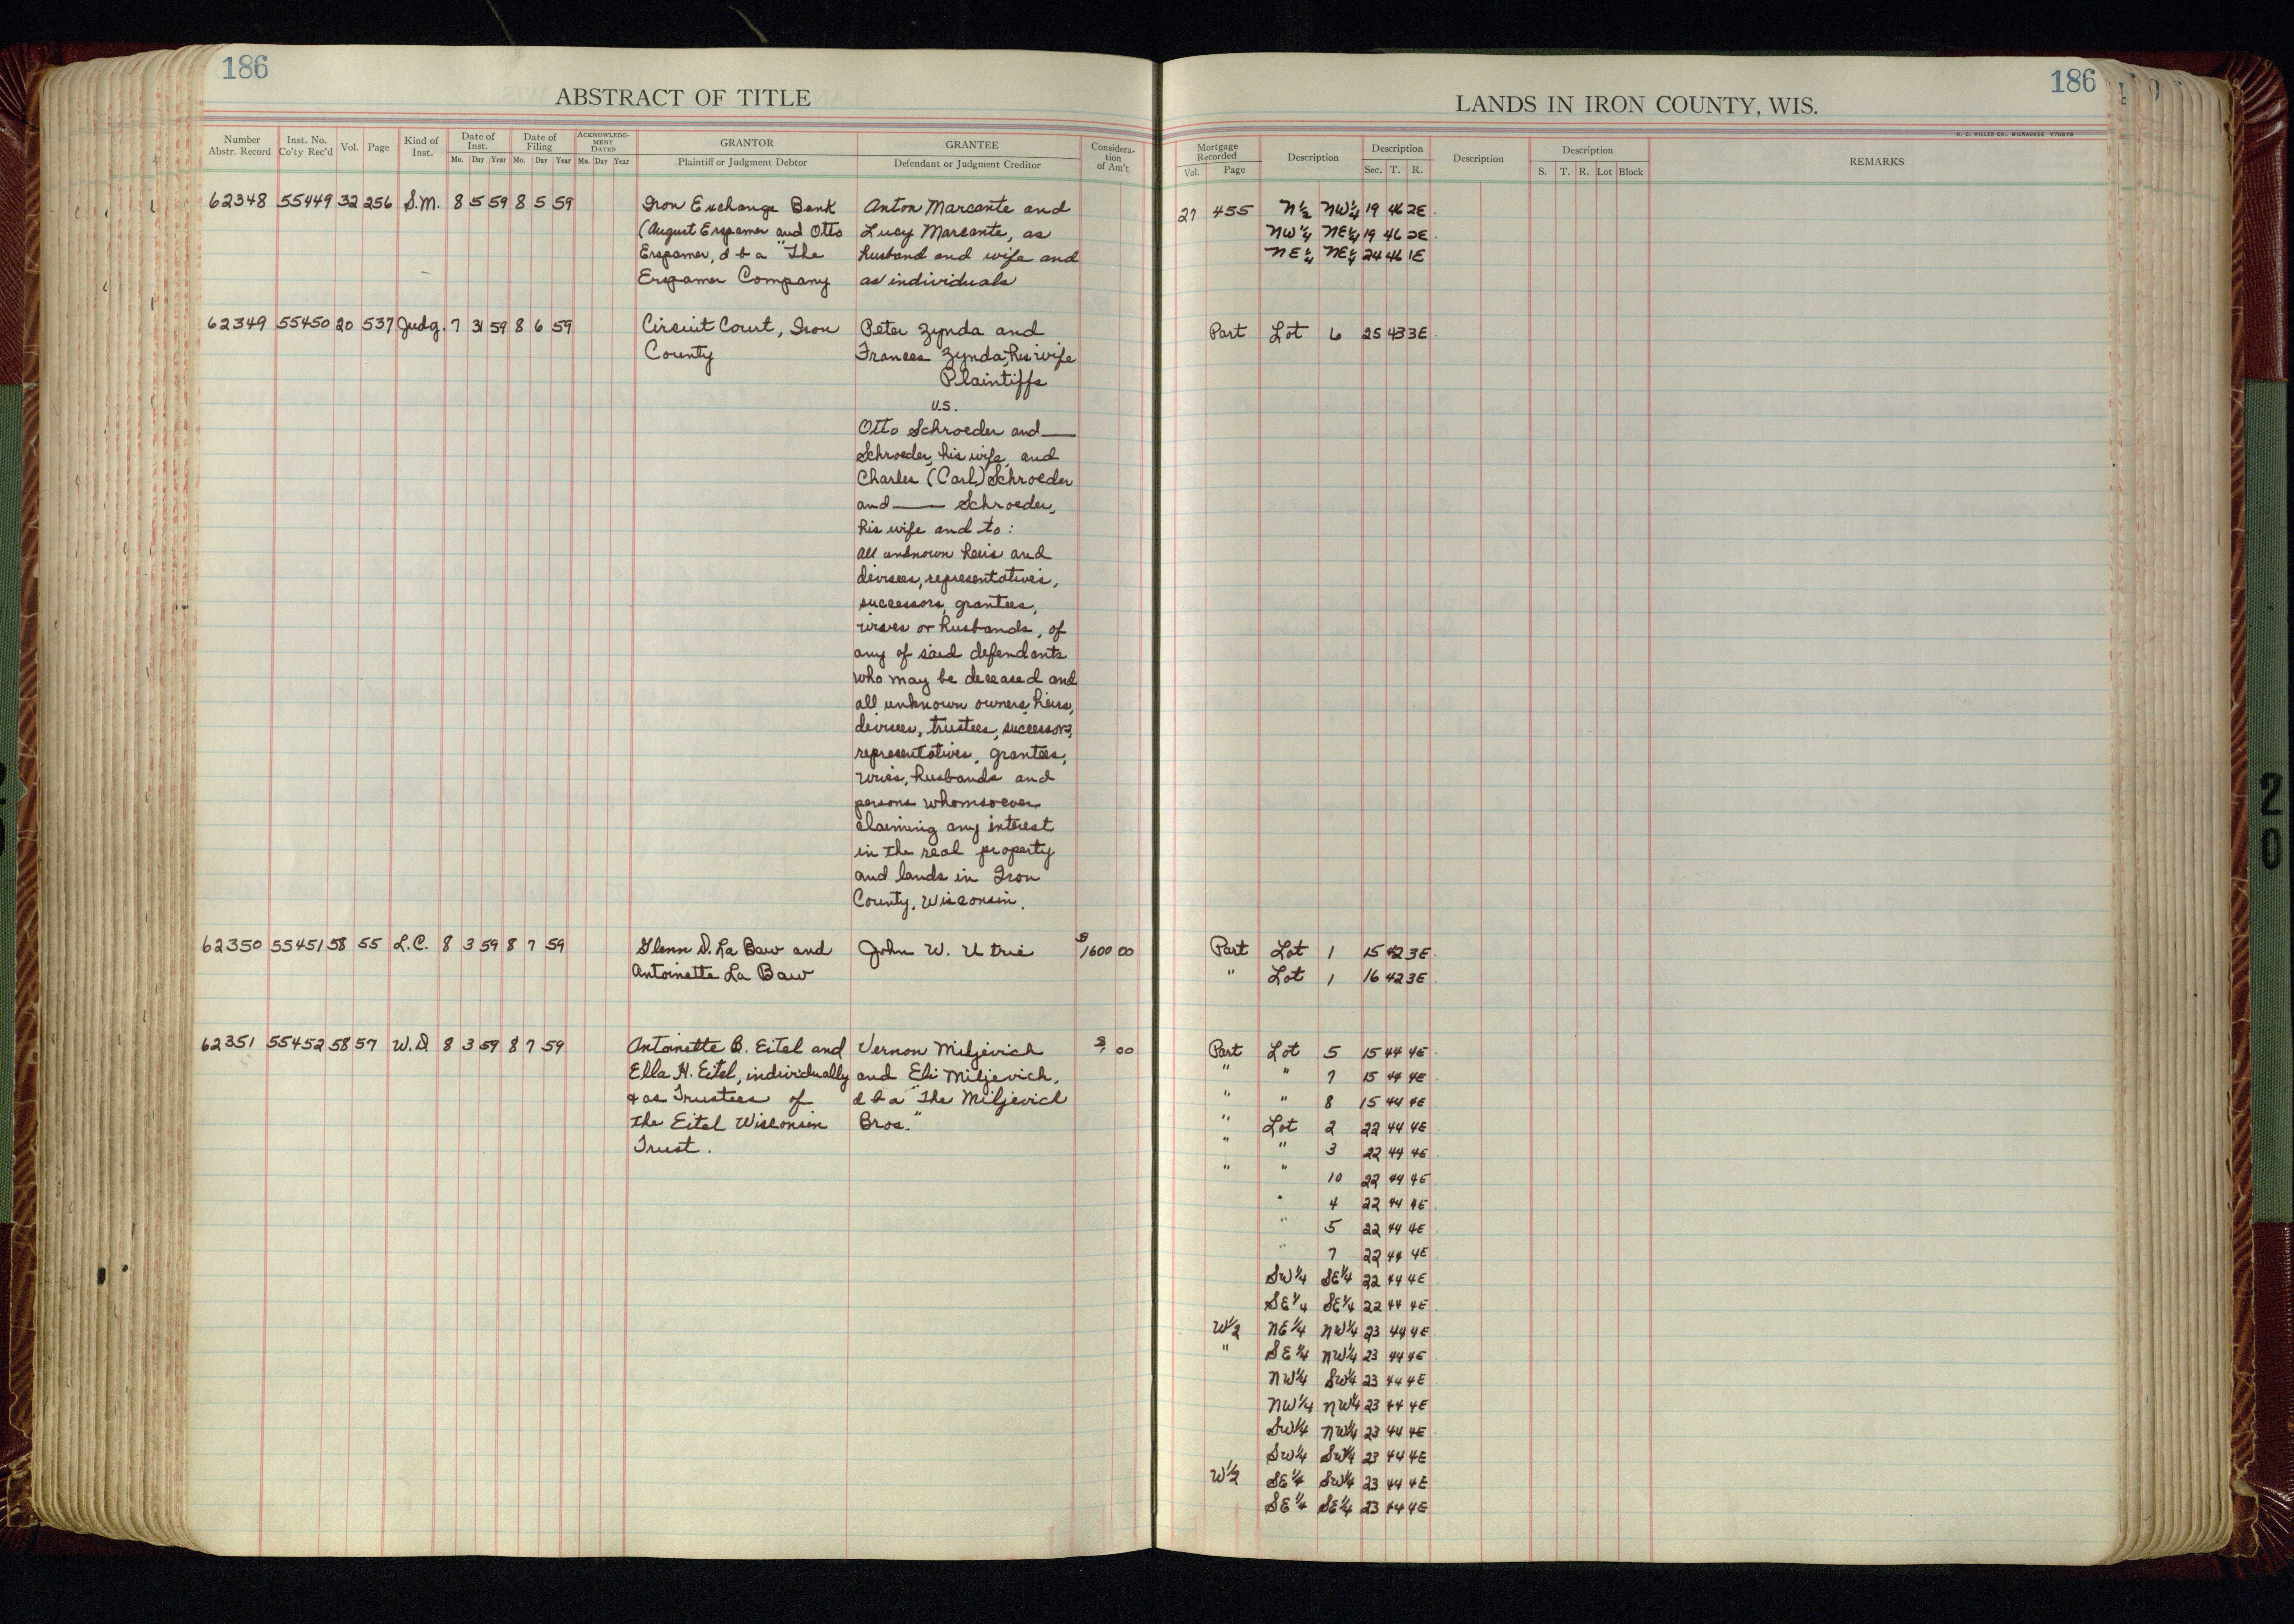 186
ABSTRACT OF TITLE
Number Abstr. Record Inst. No. Co'ty Rec'd Vol. Page Kind of Inst. Date of Inst. Mo. Day Year Date of Filing Mo. Day Year ACKNOWLEDG-MENT DATED Mo. Day Year GRANTOR Plaintiff or Judgment Debtor GRANTEE Defendant or Judgment Creditor Considera-tion of Am't
62348 55449 32 256 S.M. 8 5 59 8 5 59 Iron Exchange Bank Anton Marcante and
(August Erspamer and Otto Lucy Marcante, as
Erspamer, d b a "The husband and wife and
Erspamer Company as individuals
62349 55450 20 537 Judg. 7 31 59 8 6 59 Circuit Court, Iron Peter Zynda and
County Frances Zynda, his wife
Plaintiffs
v.s.
Otto Schroeder and ——
Schroeder, his wife, and
Charles (Carl) Schroeder
and —— Schroeder,
his wife and to:
all unknown heirs and
devisees, representatives,
successors, grantees,
wives or husbands, of
any of said defendants
who may be deceased and
all unknown owners, heirs,
devisees, trustees, successors,
representatives, grantees,
wives, husbands and
persons whomsoever
claiming any interest
in the real property
and lands in Iron
County, Wisconsin.
62350 55451 58 55 L.C. 8 3 59 8 7 59 Glenn D. La Baw and John W. Utrie $1600 00
Antoinette La Baw
62351 55452 58 57 W.D. 8 3 59 8 7 59 Antoinette B. Eitel and Vernon Miljevich $1 00
Ella H. Eitel, individually and Eli Miljevich,
& as Trustees of d b a "The Miljevich
the Eitel Wisconsin Bros."
Trust.
186
LANDS IN IRON COUNTY, WIS.
H. C. MILLER CO., MILWAUKEE V70675
Mortgage Recorded Vol. Page Description Description Sec. T. R. Description Description S. T. R. Lot Block REMARKS
27 455 N½ NW¼ 19 46 2E
NW¼ NE¼ 19 46 2E
NE¼ NE¼ 24 46 1E
Part Lot 6 25 43 3E
Part Lot 1 15 42 3E
" Lot 1 16 42 3E
Part Lot 5 15 44 4E
" " 7 15 44 4E
" " 8 15 44 4E
" Lot 2 22 44 4E
" " 3 22 44 4E
" " 10 22 44 4E
" 4 22 44 4E
" 5 22 44 4E
" 7 22 44 4E
SW¼ SE¼ 22 44 4E
SE¼ SE¼ 22 44 4E
W½ NE¼ NW¼ 23 44 4E
" SE¼ NW¼ 23 44 4E
NW¼ SW¼ 23 44 4E
NW¼ NW¼ 23 44 4E
SW¼ NW¼ 23 44 4E
SW¼ SW¼ 23 44 4E
W½ SE¼ SW¼ 23 44 4E
SE¼ SE¼ 23 44 4E
2
0